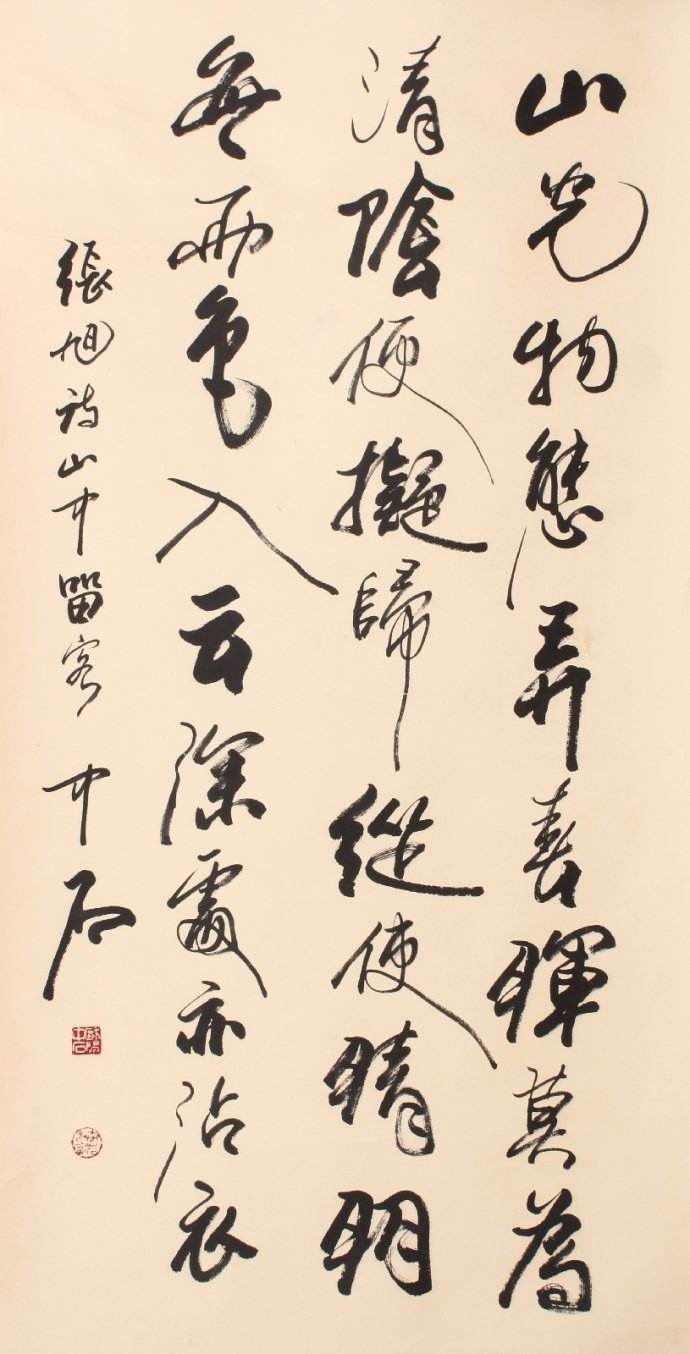 山光物態弄春暉莫為
清陰便擬歸縱使晴明
無雨色入云深處亦沾衣
張旭詩山中留客 中石
歐陽中石